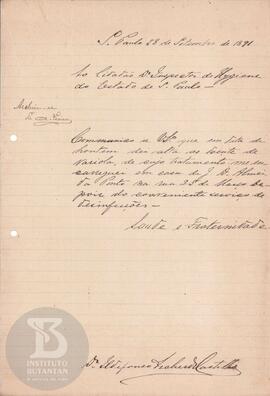 S. Paulo 28 de Setembro de 1891
Ao Cidadão Dr Inspector de Hygiene
do Estado de S. Paulo
Communico a VSa que em data de
hontem dei alta ao doente de
variola, de cujo tratamento me en
carreguei em casa de J. D.
da Ponte na rua 25 de Março de
pois do conveniente serviço de
desinfecções
Saude e Fraternidade
Dr. Ildefonso de Castilho
INSTITUTO
BUTANTAN